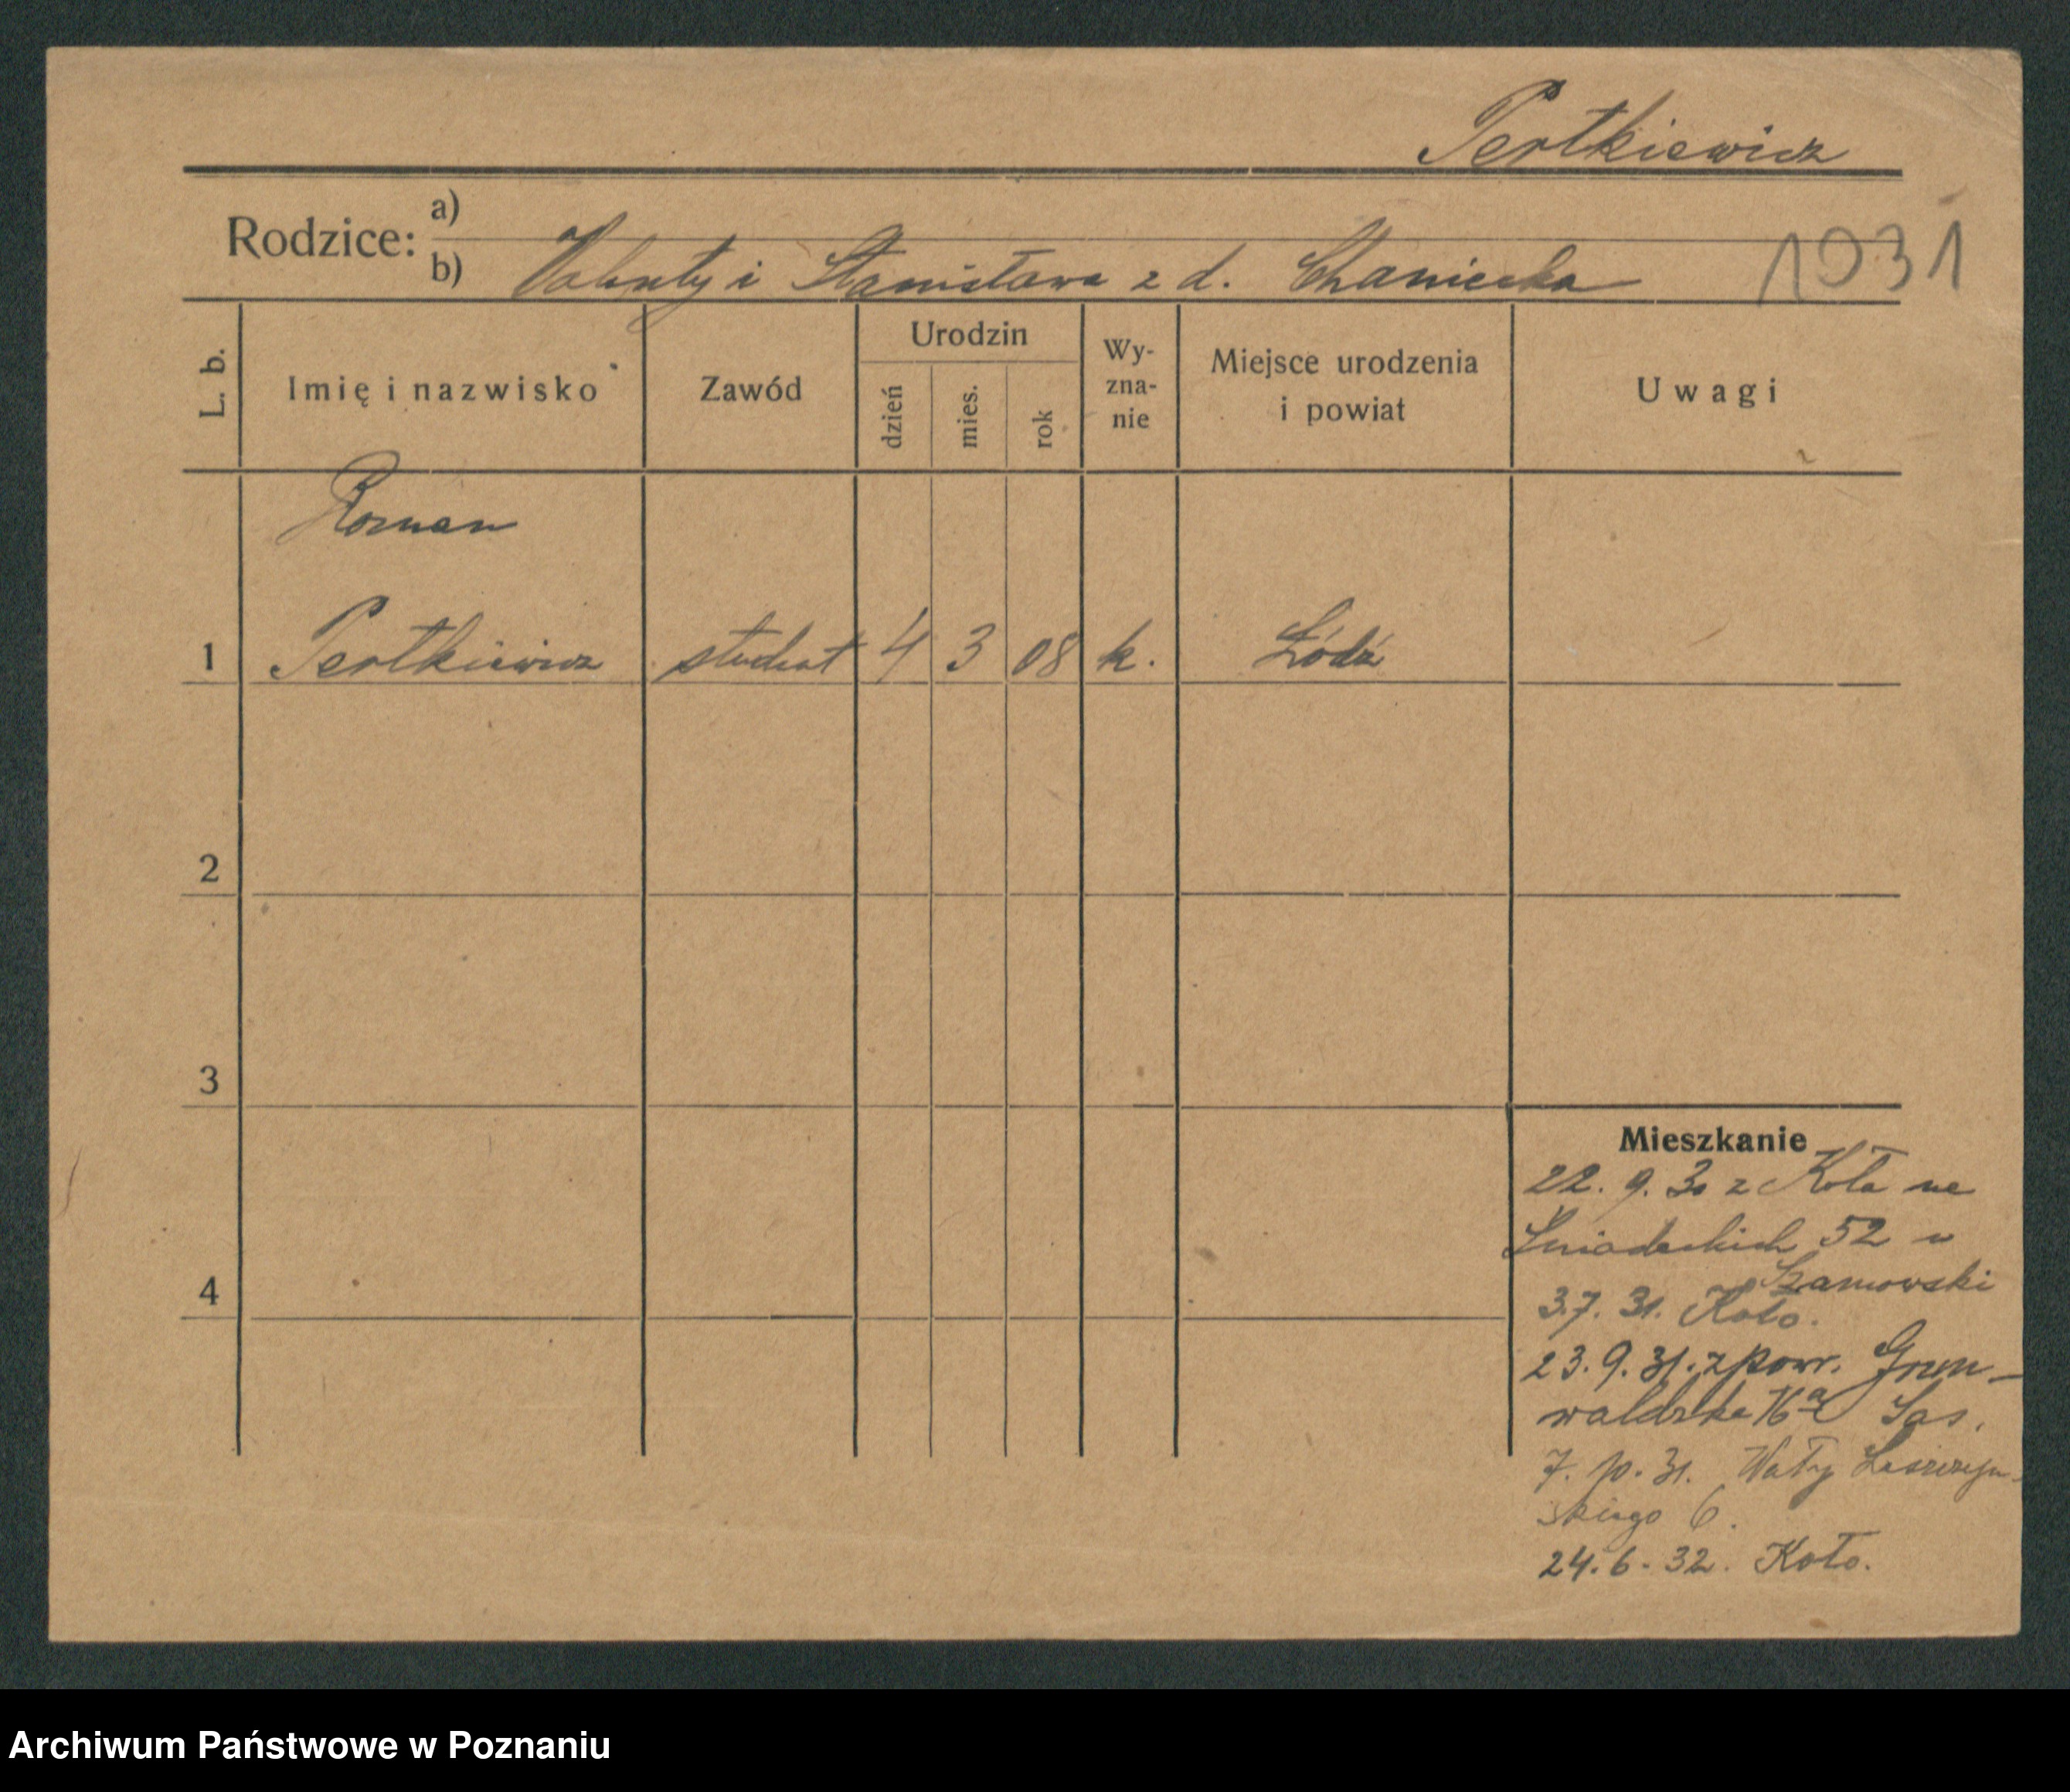 Pertkiewicz
Rodzice: a)
b) Walenty i Stanisława z d. Chaniecka
1931
L. b. Imię i nazwisko Zawód Urodzin dzień mies. rok Wy-zna-nie Miejsce urodzenia i powiat Uwagi
Roman
1 Pertkiewicz student 4 3 08 k. Łódź
2
3
4
Mieszkanie
22. 9. 30 z Koła na
Śniadeckich 52 u
Szamowski
3.7. 31. Koło.
23. 9. 31. z powr. Grun-
waldzka 16a Sas.
7. 10. 31. Wały Leszczyń-
skiego 6.
24. 6. 32. Koło.
Archiwum Państwowe w Poznaniu